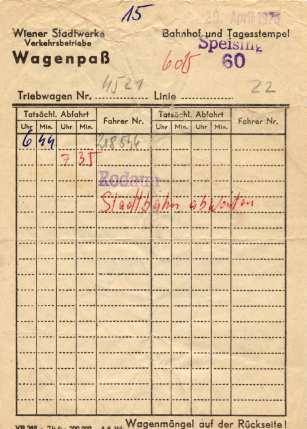 15
April 1978
Wiener Stadtwerke Bahnhof und Tagesstempel
Verkehrsbetriebe
Speising
Wagenpaß 605 60
Triebwagen Nr. 4521 Linie 22
Tatsächl. Abfahrt Fahrer Nr. Tatsächl. Abfahrt Fahrer Nr.
Uhr Min. Uhr Min. Uhr Min. Uhr Min.
6 44
7 35
Rodaun
Stadtbahn abwarten
Wagenmängel auf der Rückseite!